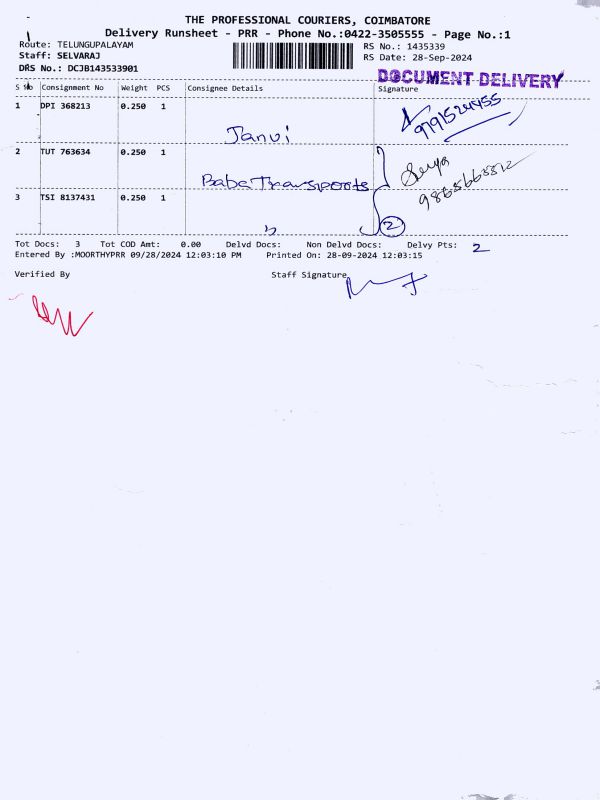 THE PROFESSIONAL COURIERS, COIMBATORE
Delivery Runsheet - PRR - Phone No.:0422-3505555 - Page No.:1
Route: TELUNGUPALAYAM
RS No.: 1435339
Staff: SELVARAJ
RS Date: 28-Sep-2024
DRS No.: DCJB143533901
DOCUMENT DELIVERY
S No Consignment No Weight PCS Consignee Details Signature
1 DPI 368213 0.250 1
Janvi
9791524455
2 TUT 763634 0.250 1
Baba Transports
Surya
3 TSI 8137431 0.250 1
2
Tot Docs: 3 Tot COD Amt: 0.00 Delvd Docs: Non Delvd Docs: Delvy Pts: 2
Entered By :MOORTHYPRR 09/28/2024 12:03:10 PM Printed On: 28-09-2024 12:03:15
Verified By Staff Signature